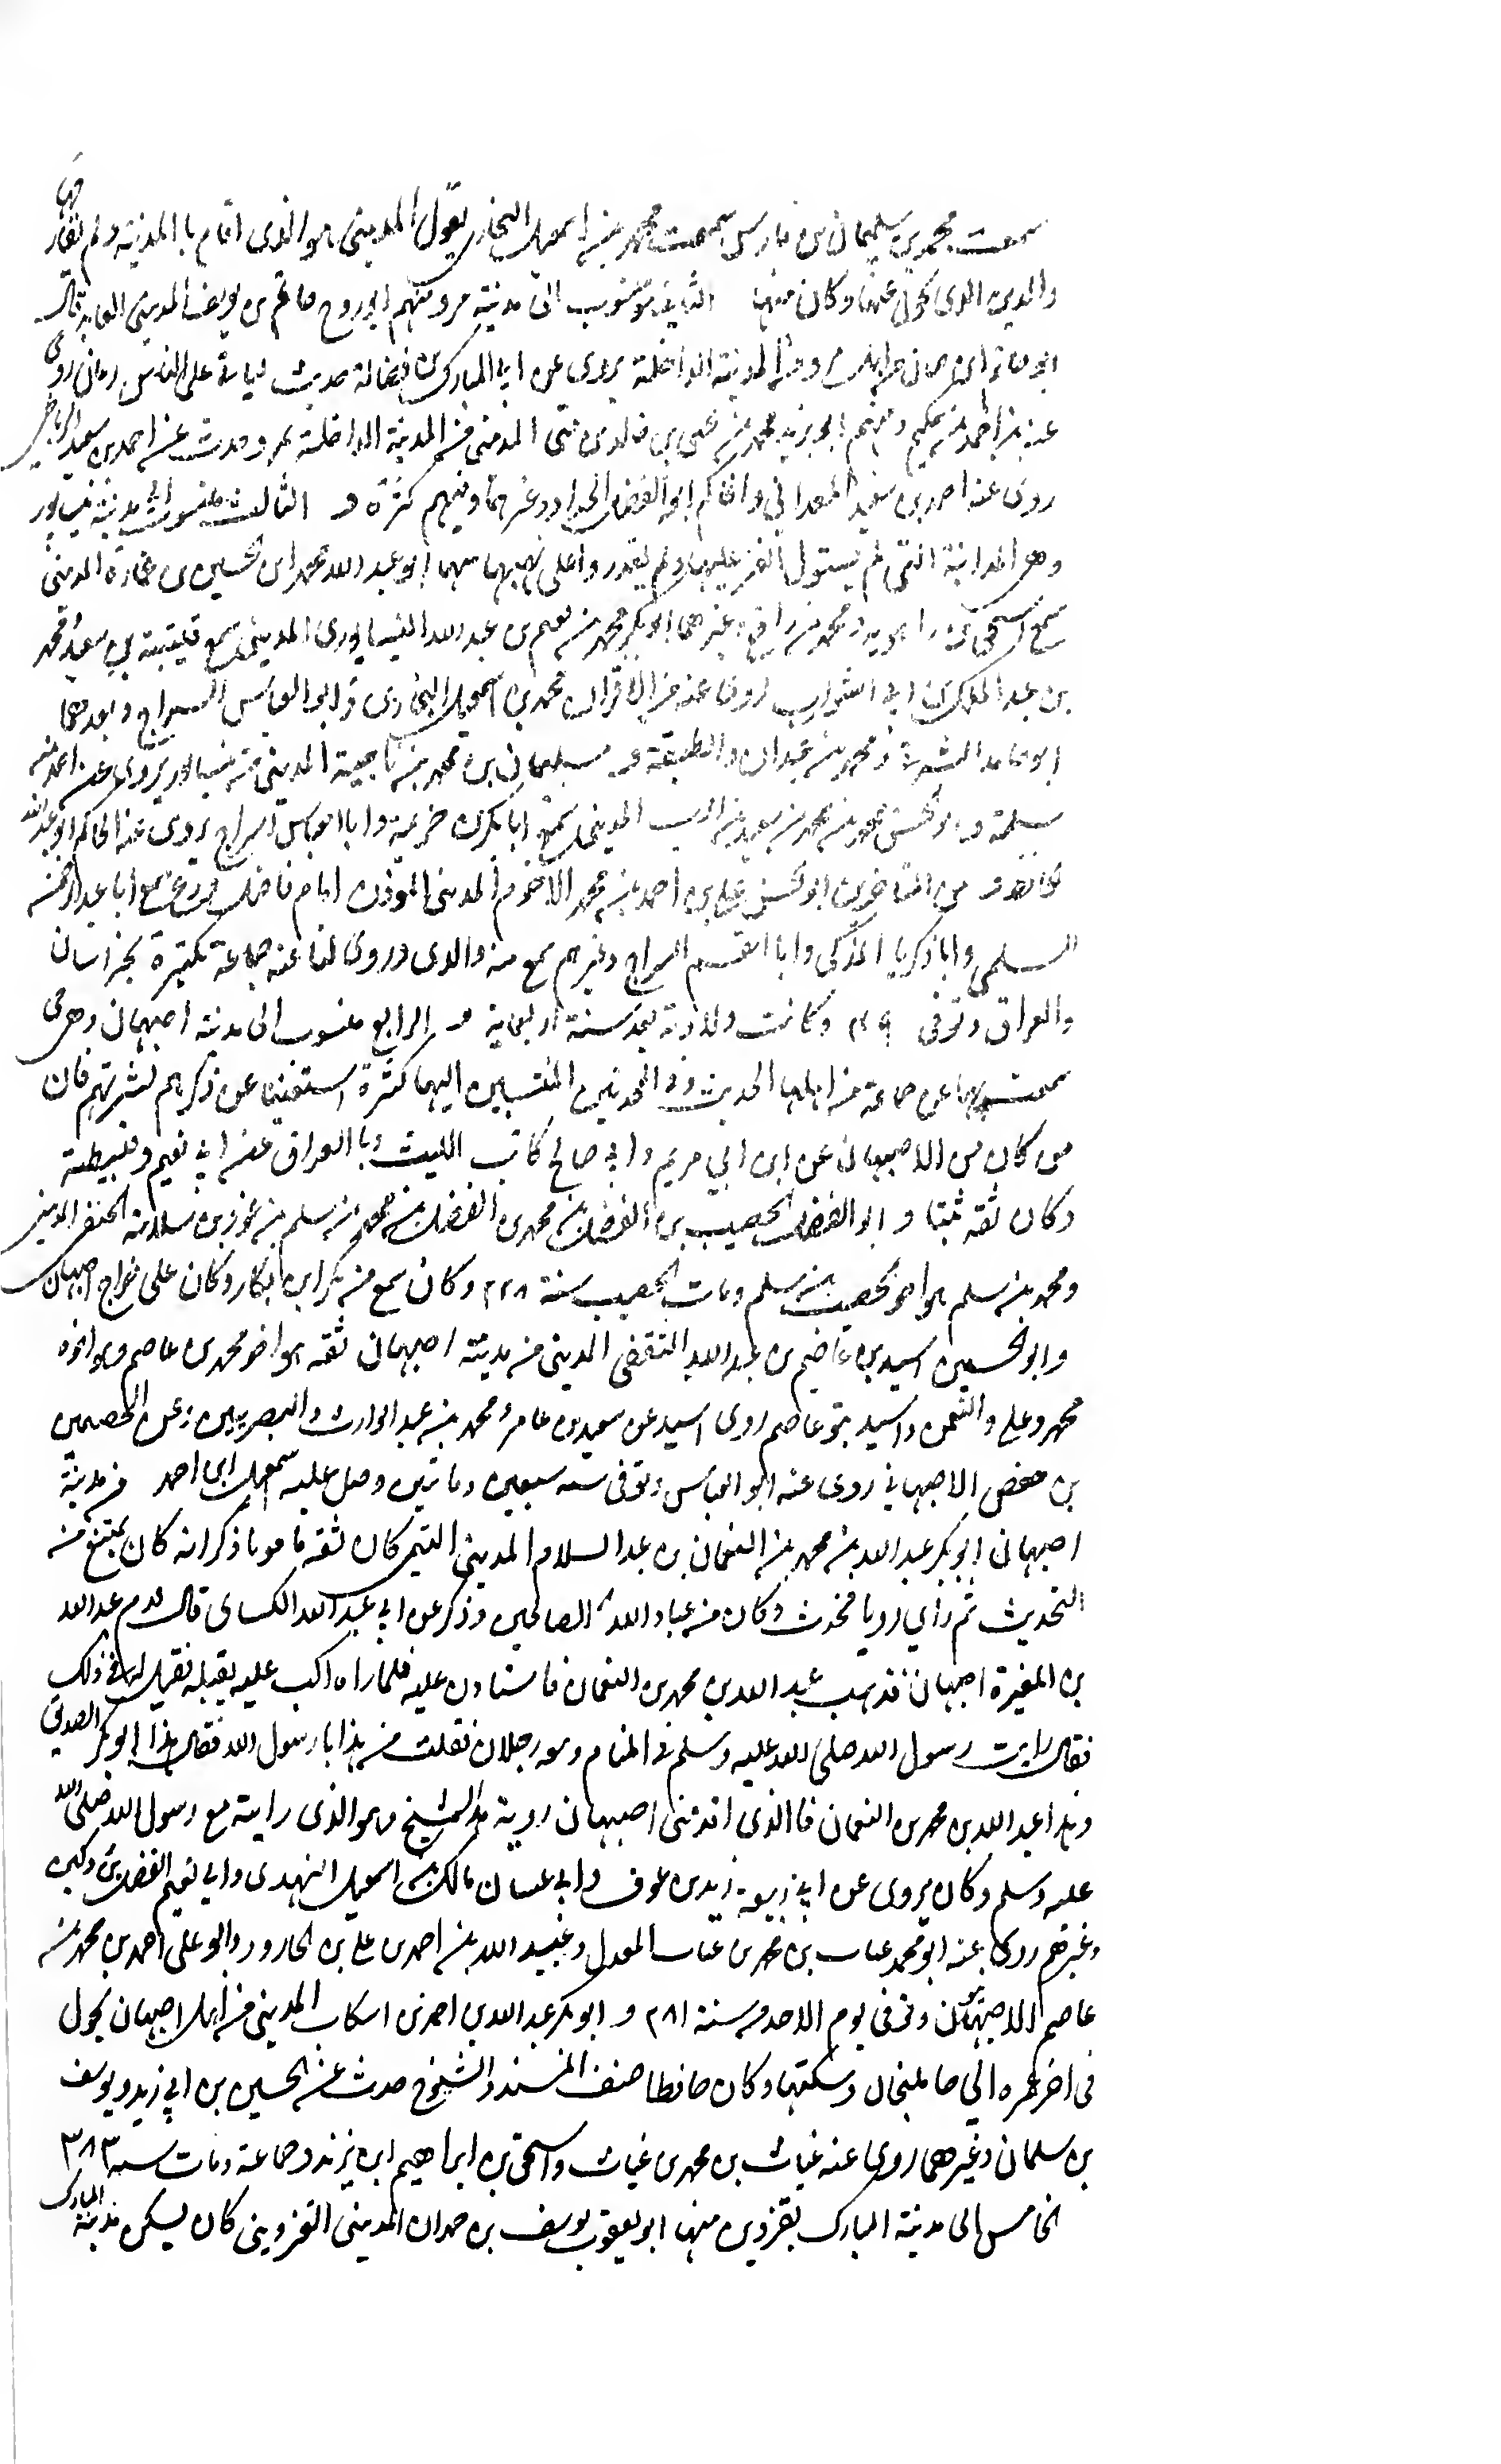 سمعت محمد بن سليمان بن فارس سمعت محمد بن اسمعيل البخاري يقول المديني هو الذي اقام با المدينة ولم يفارقها
والمدني الذي تحول عنها وكان منها الثاني منسوب الى مدينة مرو منهم ابوروح حاتم بن يوسف المديني العابد قال
ابو حاتم ابن حبان من اهل مرو من المدينة الداخلة يروي عن ابن المبارك بن فضالة حديث على الناس زمان روى
عنه احمد بن حكيم ومنهم ابو يزيد محمد بن يحيى بن خالد بن المديني من المدينة الداخلة بمرو حدث عن احمد بن سعيد الرباطي
روى عنه احمد بن سعيد المعداني والحاكم ابو الفضل الحدادي وغيرهما ومنهم كثرة و الثالث منسوب الى مدينة نيسابور
وهي المدينة التي لم يستول الغز عليها ولم يقدروا على نهبها منها ابو عبد الله محمد ابن الحسين بن عمارة المديني
سمع اسحق بن راهويه ومحمد بن رافع وغيرهما ابو بكر محمد بن نعيم بن عبد الله النيسابوري المديني سمع قتيبة بن سعيد ومحمد
بن عبد الملك بن ابي الشوارب روى عنه من الاقران محمد بن اسمعيل البخاري و ابو العباس السراج وبعدهما
ابو حامد الشرقي ومحمد بن عبدان والطبقة و سليمان بن محمد بن ناجية المديني من نيسابور يروي عن احمد بن
سلمة و ابو الحسن محمد بن محمد بن سعيد بن المديني سمع ابا بكر بن خزيمة وابا العباس السراج يروى عنه الحاكم ابو عبد الله
الحافظ و من المتاخرين ابو الحسن علي بن احمد بن محمد الاخرم المديني المؤذن امام فاضل ورع سمع ابا عبد الرحمن
السلمي وابا زكريا المزكي وابا القسم السراج وغيرهم سمع منه والدي وروى لنا عنه جماعة كثيرة بخراسان
والعراق وتوفى وكانت ولادته بعد سنة اربعماية و الرابع منسوب الى مدينة اصبهان وهي
سمعت بها عن جماعة من اهلها الحديث وفي المحدثين المنتسبين اليها كثرة استغنينا عن ذكرهم لشهرتهم فان
من كان من الاصبهان عن ابن ابي مريم وابي صالح كاتب الليث وبا العراق عن ابي نعيم وقبيصة
وكان ثقة ثبتا و ابو الفضل الخصيب بن الفضل بن محمد بن الفضل بن محمد بن سلم بن سلامة الحنفي المديني
ومحمد بن سلم هو اخو الخصيب بن سلم ومات الخصيب سنة ٢٢٨ وكان سمع من بكر ابن بكار وكان على خراج اصبهان
وابو الحسين اسيد بن عاصم بن عبد الله الثقفي المديني من مدينة اصبهان ثقة هو اخو محمد بن عاصم وهو اخوه
محمد وعلي والنعمن واسيد بنو عاصم روى اسيد عن سعيد بن عامر ومحمد بن عبد الوارث والبصريين وعن الحسين
بن حفص الاصبهاني روى عنه ابو العباس وتوفى سنة سبعين وماتين وصلى عليه اسمعيل ابن احمد من مدينة
اصبهان ابو بكر عبد الله بن محمد بن النعمان بن عبد السلام المديني التيمي كان ثقه مامونا ذكر انه كان يمتنع من
التحديث ثم راي رويا فحدث وكان من عباد الله الصالحين وذكر عن ابي عبد الله الكسائي قال قدم عبد الله
بن المغيرة اصبهان فذهب عبد الله بن محمد بن النعمان فاستاذن عليه فلما راه اكب عليه يقبله فقيل له في ذلك
فقال رايت رسول الله صلى الله عليه وسلم في المنام ومعه رجلان فقلت من هذا يا رسول الله فقال هذا ابو بكر الصديق
وهذا عبد الله بن محمد بن النعمان فا الذي اقدمني اصبهان روية هذا الشيخ وهو الذي رايته مع رسول الله صلى الله
عليه وسلم وكان يروى عن ابي ربيعة زيد بن عوف وابي غسان مالك بن اسمعيل النهدي وابي نعيم الفضل بن دكين
وغيرهم روى عنه ابو محمد عتاب بن محمد بن عتاب المعدل وعبيد الله بن احمد بن علي بن الجارود وابو علي احمد بن محمد بن
عاصم الاصبهانيون وتوفي في يوم الاحد من سنة ٢٨١ و ابو بكر عبد الله بن احمد بن اسكاب المديني من اهل اصبهان تحول
في اخر عمره الى خابلنجان وسكنها وكان حافظا صنف المسند والشيوخ حدث عن الحسين بن ابي زيد ويوسف
بن سلمان وغيرهما روى عنه غياث بن محمد بن غياث واسحق بن ابراهيم ابن يزيد وجماعة ومات سنة ٣٨٣
الخامس الى مدينة المبارك بقزوين منها ابو يعقوب يوسف بن حمدان المديني القزويني كان يسكن مدينة المبارك